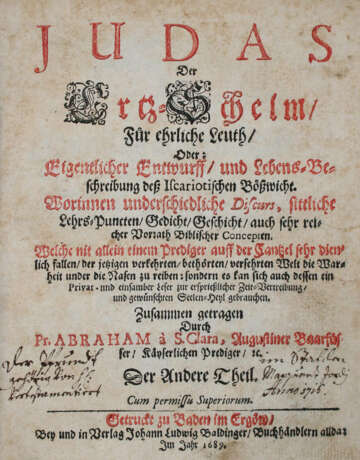 JUDAS
Der
Ertz-Schelm/
Für ehrliche Leuth/
Oder:
Eigentlicher Entwurff/ und Lebens-Be-
schreibung deß Iscariotischen Bößwicht.
Worinnen underschiedliche Discurs, sittliche
Lehrs-Puncten/ Gedicht/ Geschicht/ auch sehr rei-
cher Vorrath Biblischer Concepten.
Welche nit allein einem Prediger auff der Cantzel sehr dien-
lich fallen/ der jetzigen verkehrten/ bethörten/ versehrten Welt die War-
heit under die Nasen zu reiben: sondern es kan sich auch dessen ein
Privat- und einsamber Leser zur ersprießlicher Zeit-Vertreibung/
und gewünschten Seelen-Heyl gebrauchen.
Zusammen getragen
Durch
Pr. ABRAHAM à S. Clara, Augustiner Baarfüs-
ser/ Käyserlichen Prediger/ ec.
Der Andere Theil.
Anno 1718.
Cum permissu Superiorum.
Getruckt zu Baden im Ergöw/
Bey und in Verlag Johann Ludwig Baldinger/ Buchhändlern allda:
Im Jahr 1689.